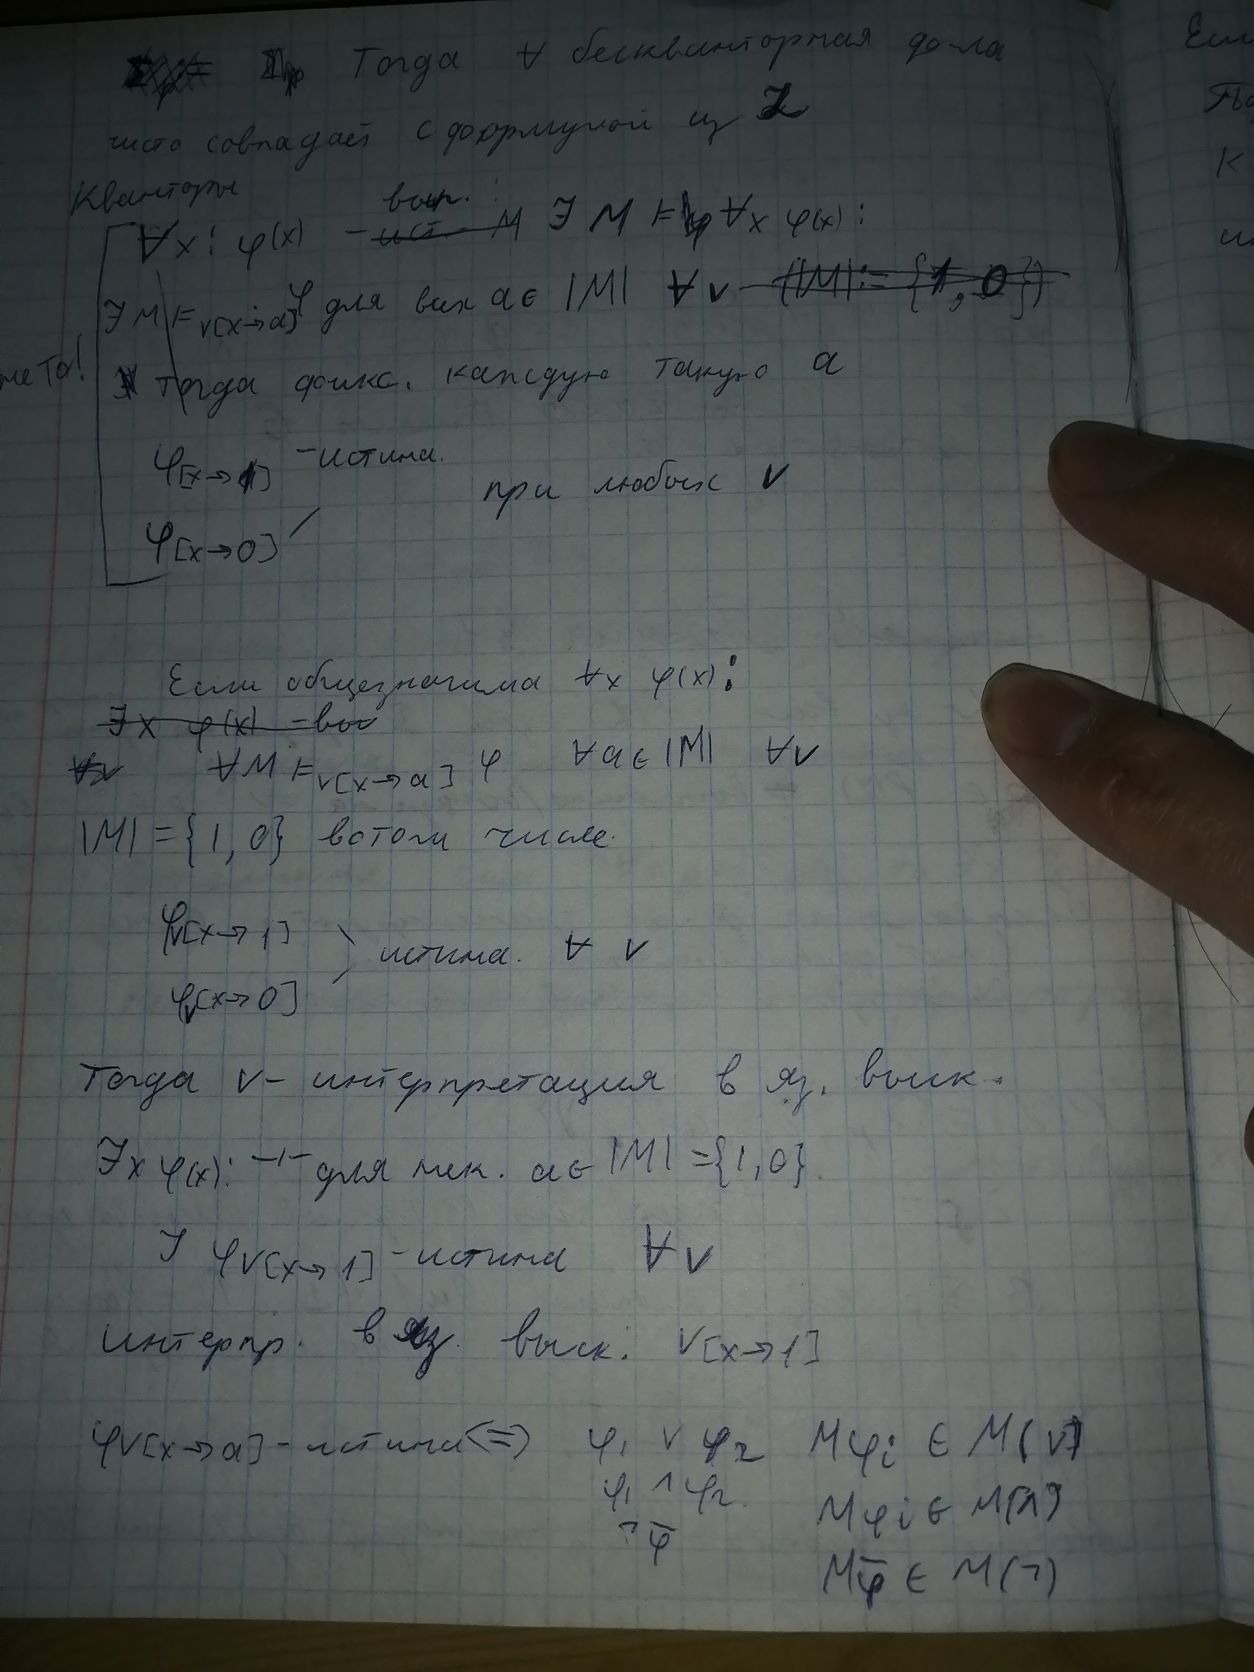 Тогда ∀ бескванторная ф-ла
чисто совпадает с формулой из
Кванторы
вып.:
∀x: φ(x) - ист. M ∃ M ⊨ ∀x φ(x):
∃ M ⊨ v[x→a] φ для всех a ∈ |M| ∀ v (|M| := {1, 0})
Тогда фикс. каждую такую a
φ[x→1] - истина.
при любых v
φ[x→0]
Если общезначима ∀x φ(x):
∃x φ(x) - вы
∀v ∀M ⊨ v[x→a] φ ∀a ∈ |M| ∀v
|M| = {1, 0} в том числе.
φv[x→1]
истина. ∀ v
φv[x→0]
Тогда v - интерпретация в яз. выск.
∃x φ(x): -ı- для нек. a ∈ |M| = {1, 0}.
∃ φv[x→1] - истина ∀ v
интерпр. в яз. выск. v[x→1]
φv[x→a] - истина <=> φ₁ ∨ φ₂ Mφi ∈ M(∨)
φ₁ ∧ φ₂ Mφi ∈ M(∧)
¬φ̄ Mφ̄ ∈ M(¬)